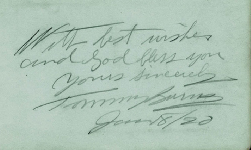 With best wishes
and God bless you
Yours Sincerely
Tommy Burns
Jan 18/20